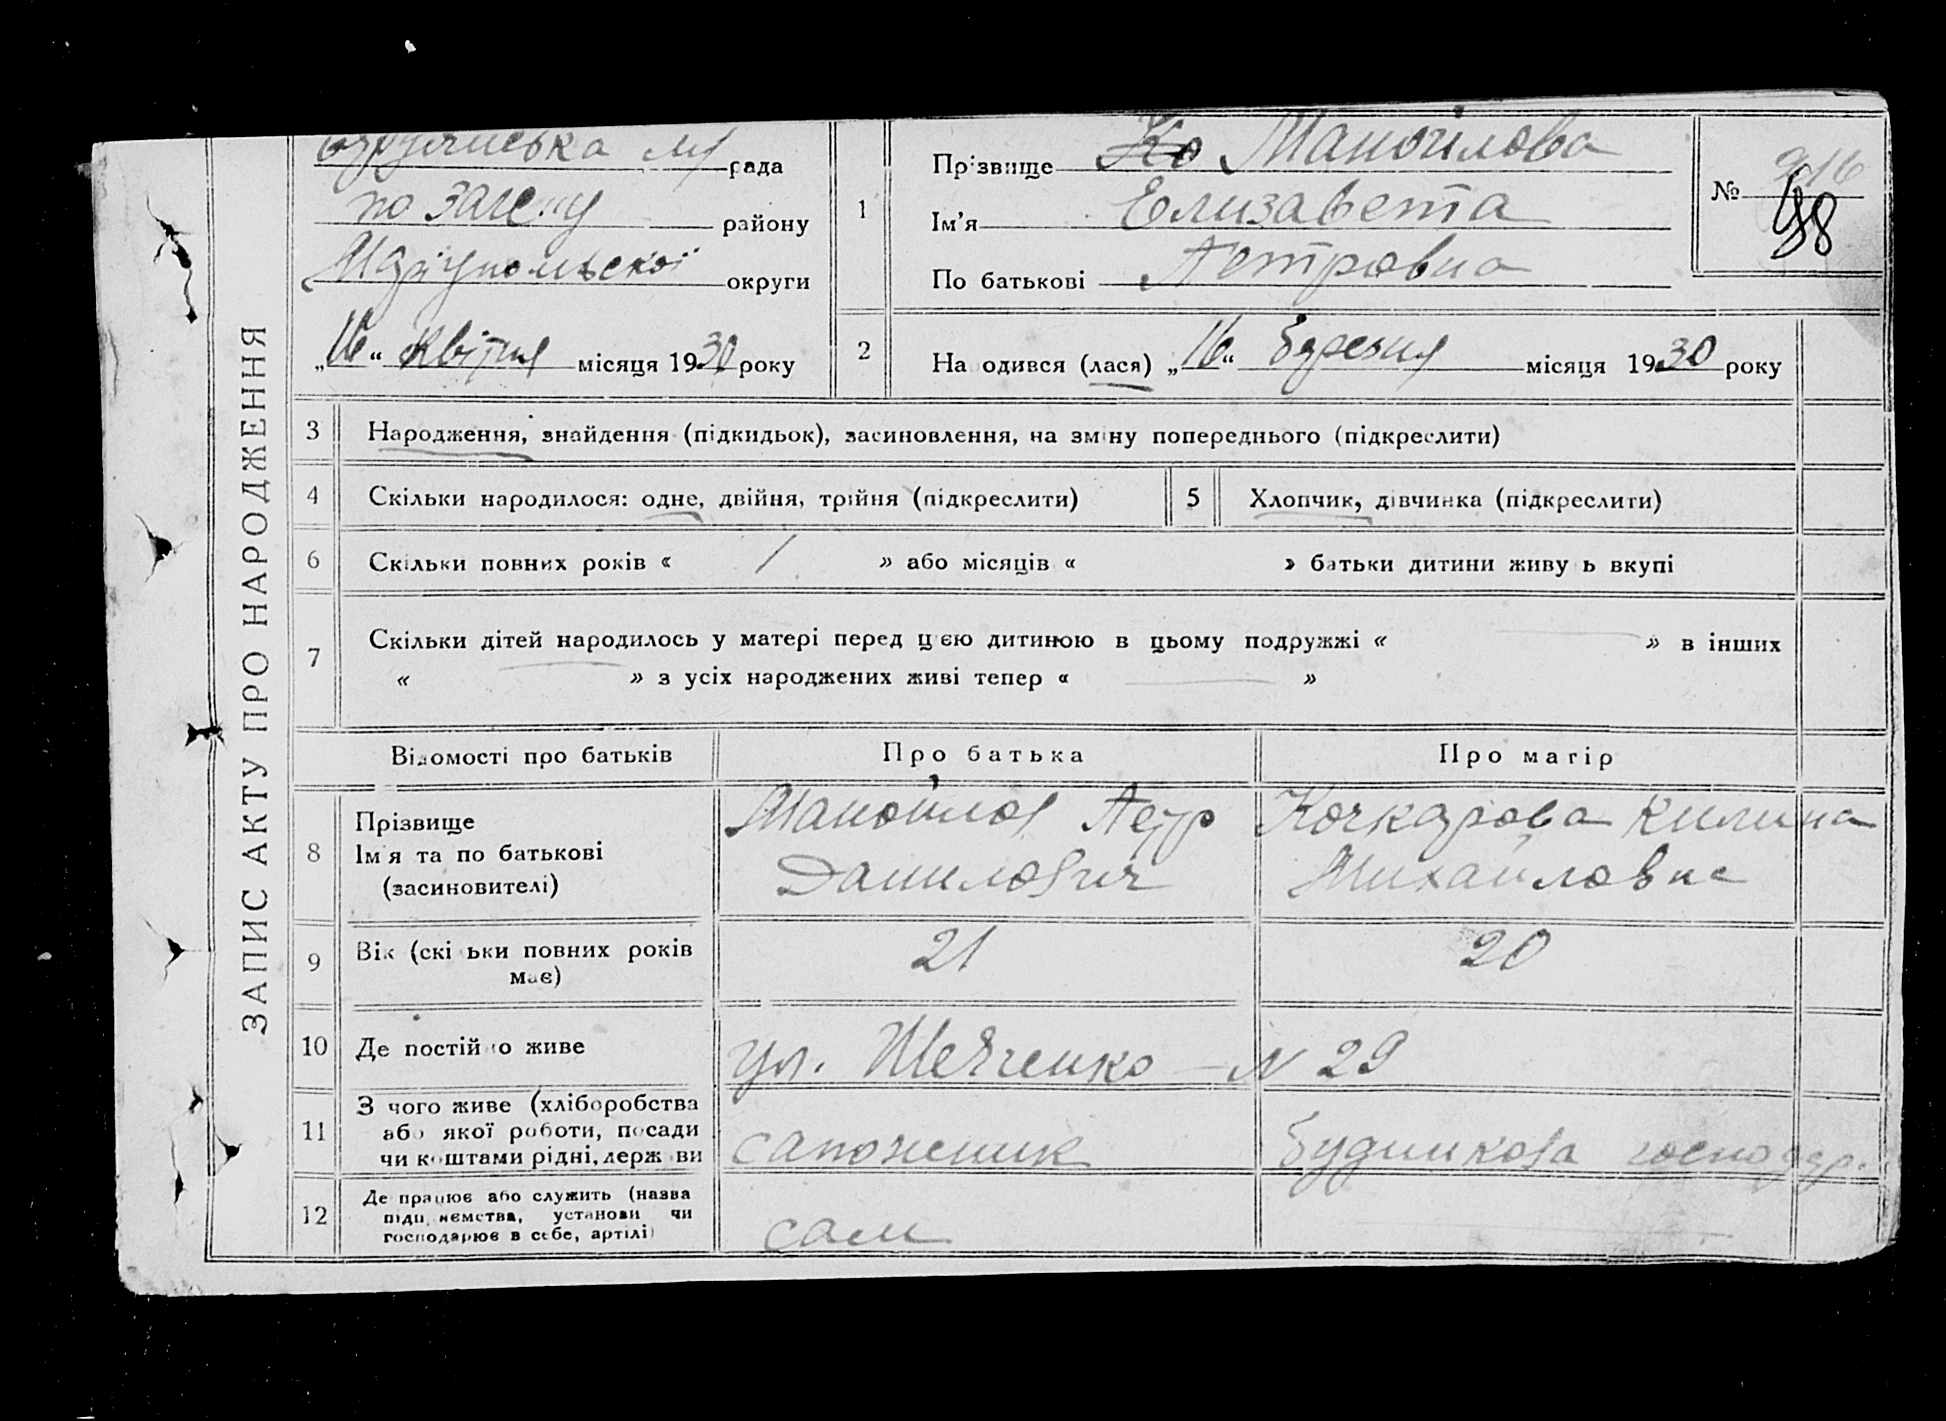 ЗАПИС АКТУ ПРО НАРОДЖЕННЯ
рада
по ЗАГСу району
Маріупольської округи
„16“ квітня місяця 1930 року
1
Прізвище Ко Манойлова
Ім’я Елизавета
По батькові Петровна
№ 98
2
На одився (лася) „16“ березня місяця 1930 року
3 Народження, знайдення (підкидьок), засиновлення, на зміну попереднього (підкреслити)
4 Скільки народилося: одне, двійня, трійня (підкреслити)
5 Хлопчик, дівчинка (підкреслити)
6 Скільки повних років « / » або місяців « » батьки дитини живу ь вкупі
7 Скільки дітей народилось у матері перед цією дитиною в цьому подружжі « — » в інших
« — » з усіх народжених живі тепер « — »
Відомості про батьків
Про батька
Про матір
8 Прізвище
Ім’я та по батькові
(засиновителі)
Манойлов Петр
Данилович
Кочкарова Килина
Михайловна
9 Вік (скі ьки повних років
має)
21
20
10 Де постійно живе
ул. Шевченко — N 29
11 З чого живе (хліборобства
або якої роботи, посади
чи коштами рідні, держ ви
сапожник
будинкова господар.
12 Де працює або служить (назва
підп иємства, установи чи
господарює в себе, артілі)
сам